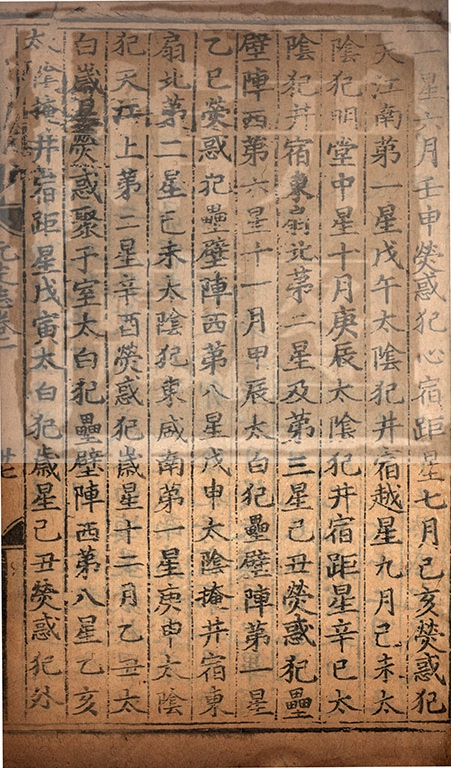 一星六月壬申熒惑犯心宿距星七月己亥熒惑犯
天江南第一星戊午太陰犯井宿越星九月己未太
陰犯明堂中星十月庚辰太陰犯井宿距星辛巳太
陰犯井宿東扇北第二星及第三星己丑熒惑犯壘
壁陣西第六星十一月甲辰太白犯壘壁陣第一星
乙巳熒惑犯壘壁陣西第八星戊申太陰掩井宿東
扇北第二星己未太陰犯東咸南第一星庚申太陰
犯天江上第二星辛酉熒惑犯歲星十二月乙丑太
白歲星熒惑聚于室太白犯壘壁陣西第八星乙亥
太陰掩井宿距星戊寅太白犯歲星己丑熒惑犯外
元史志卷二
廿七